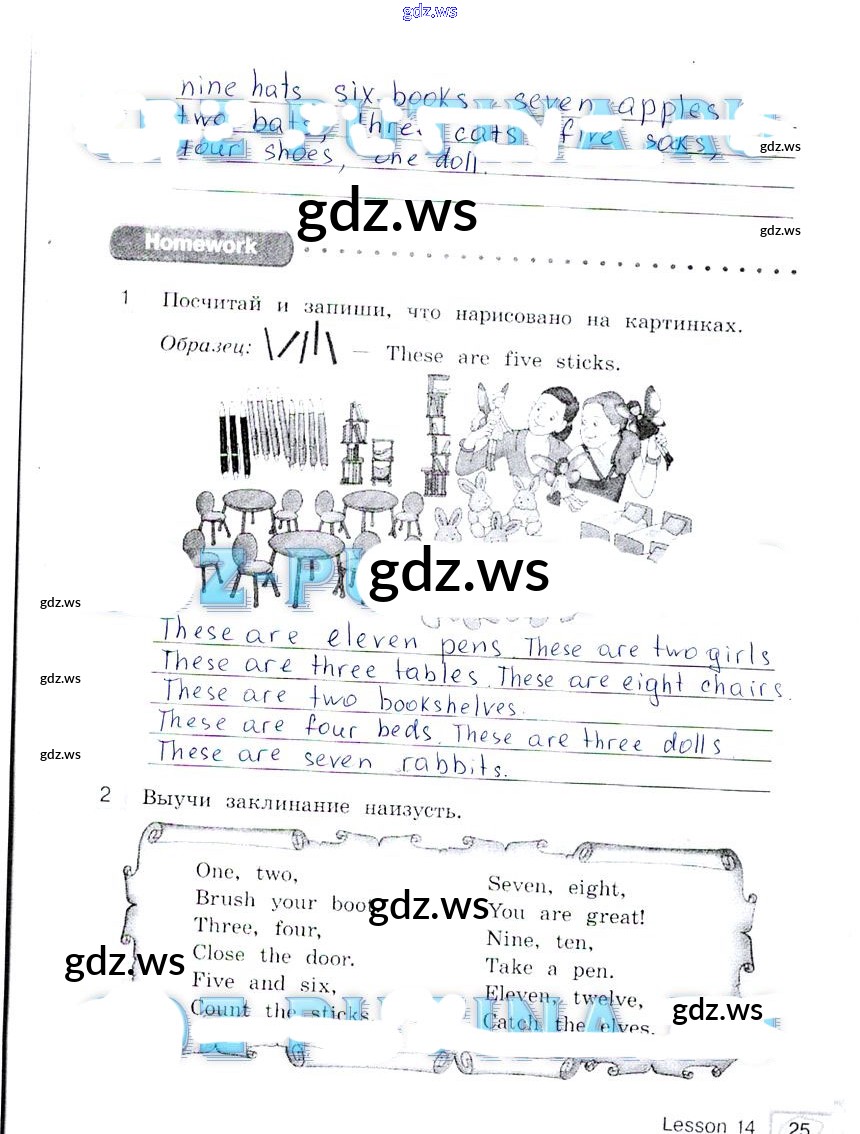 gdz.ws
nine hats six books, seven apples
two bats, three cats, five soks,
four shoes, one doll.
gdz.ws
gdz.ws
gdz.ws
Homework
1 Посчитай и запиши, что нарисовано на картинках.
Образец: — These are five sticks.
gdz.ws
gdz.ws
These are eleven pens. These are two girls
These are three tables. These are eight chairs.
gdz.ws
These are two bookshelves.
These are four beds. These are three dolls
gdz.ws
These are seven rabbits.
2 Выучи заклинание наизусть.
One, two,
Brush your
Three, four,
Close the door.
Five and six,
Count the sticks.
Seven, eight,
You are great!
Nine, ten,
Take a pen.
Eleven, twelve,
Catch the elves.
gdz.ws
gdz.ws
gdz.ws
Lesson 14 25